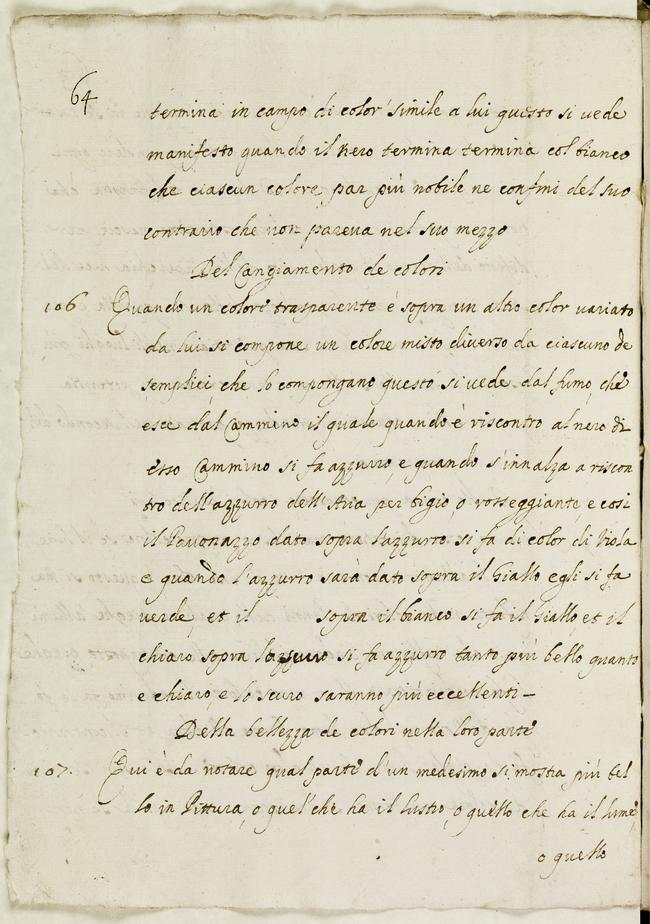 64
termina in campo di color simile a lui questo si vede
manifesto quando il Nero termina termina col bianco
che ciascun colore par più nobile ne confini del suo
contrario che non pareva nel suo mezzo
Del Cangiamento de colori
106 Quando un colore trasparente è sopra un altro color variato
da lui si compone un colore misto diverso da ciascuno de
semplici, che lo compongano questo si vede dal fumo, che
esce dal Cammino il quale quando è riscontro al nero di
esso Cammino si fa azzurro, e quando s'innalza a riscon
tro dell'azzurro dell'Aria per bigio o rosseggiante, e così
il Pavonazzo dato sopra l'azzurro si fa di color di Viola
e quando l'azzurro sarà dato sopra il Giallo egli si fa
verde, et il sopra il bianco si fa il Giallo et il
chiaro sopra l'oscuro si fa azzurro tanto più bello quanto
e chiaro, e lo scuro saranno più eccellenti –
Della bellezza de colori nella loro parte
107. Qui è da notare qual parte d'un medesimo si mostra più bel
lo in Pittura, o quel che ha il lustro, o quello che ha il lume,
o quello